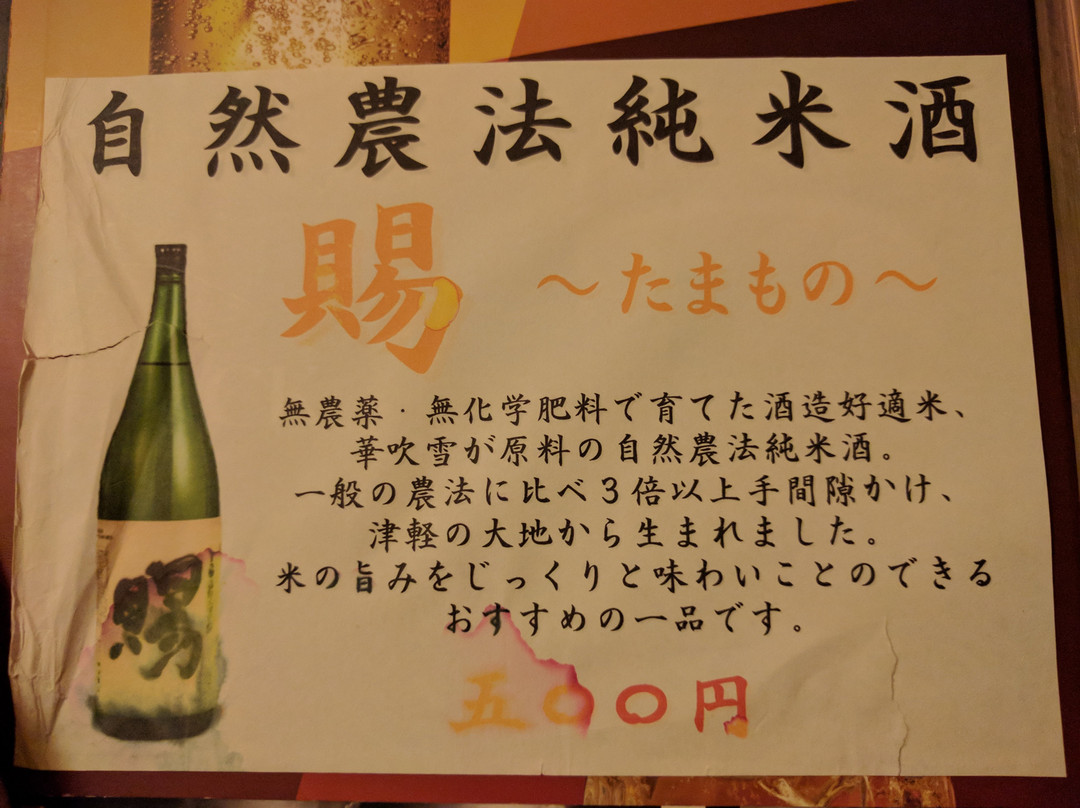 自然農法純米酒
賜 ～たまもの～
無農薬・無化学肥料で育てた酒造好適米、
華吹雪が原料の自然農法純米酒。
一般の農法に比べ3倍以上手間隙かけ、
津軽の大地から生まれました。
米の旨みをじっくりと味わいことのできる
おすすめの一品です。
五〇〇円
賜